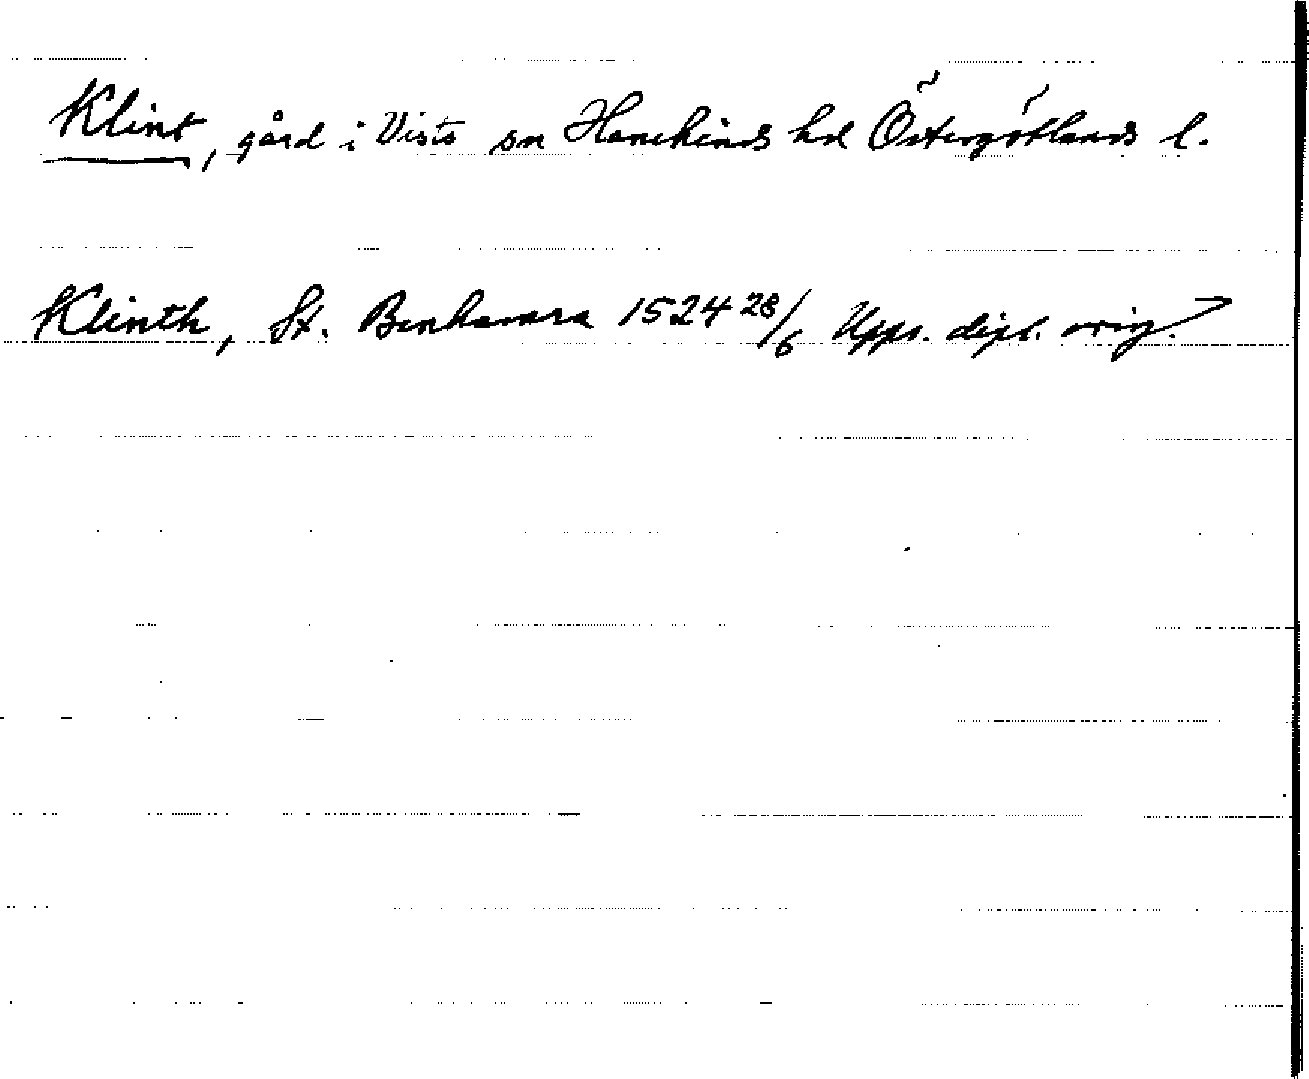 Klint, gård i Vists sn Hanekinds hd Östergötlands l.
Klinth, St. Benhamra 1524 28/6 Upps. dipl. orig.